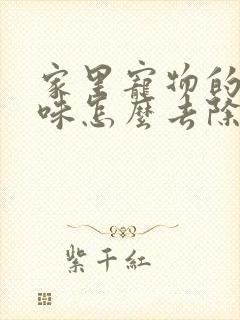 家里寵物的
味怎麽去除
紫千紅